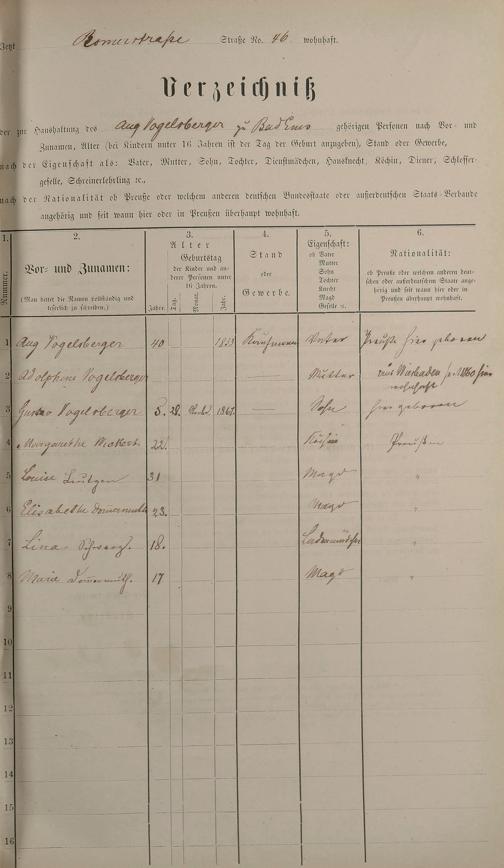 Jetzt Römerstraße Straße No. 46 wohnhaft.
Verzeichniß
der zur Haushaltung des Aug Vogelsberger zu Bad Ems gehörigen Personen nach Vor- und
Zunamen, Alter (bei Kindern unter 16 Jahren ist der Tag der Geburt anzugeben), Stand oder Gewerbe,
nach der Eigenschaft als: Vater, Mutter, Sohn, Tochter, Dienstmädchen, Hausknecht, Köchin, Diener, Schlosser-
geselle, Schreinerlehrling ꝛc.,
nach der Nationalität ob Preuße oder welchem anderen deutschen Bundesstaate oder außerdeutschen Staats-Verbande
angehörig und seit wann hier oder in Preußen überhaupt wohnhaft.
1. 2. 3. 4. 5. 6.
Nummer.
Vor- und Zunamen:
(Man bittet die Namen vollständig und
leserlich zu schreiben.)
Alter
Geburtstag
der Kinder und an-
derer Personen unter
16 Jahren.
Jahre. Tag. Monat. Jahr.
Stand
oder
Gewerbe.
Eigenschaft:
ob Vater
Mutter
Sohn
Tochter
Knecht
Magd
Geselle ꝛc.
Nationalität:
ob Preuße oder welchem anderen deut-
schen oder außerdeutschen Staate ange-
hörig und seit wann hier oder in
Preußen überhaupt wohnhaft.
1 Aug Vogelsberger 40 1833 Kaufmann Vater Preuße hier geboren
2 Adolphine Vogelsberger Mutter aus Wiesbaden seit 1860 hier
wohnhaft
3 Gustav Vogelsberger 5. 28. 1867. Sohn hier geboren
4 Margarethe 22. Köchin Preußen
5 Louise 31 Magd "
6 Elisabethe 23. Magd "
7 Lina 18. Ladenmädchen "
8 Marie 17 Magd "
9
10
11
12
13
14
15
16